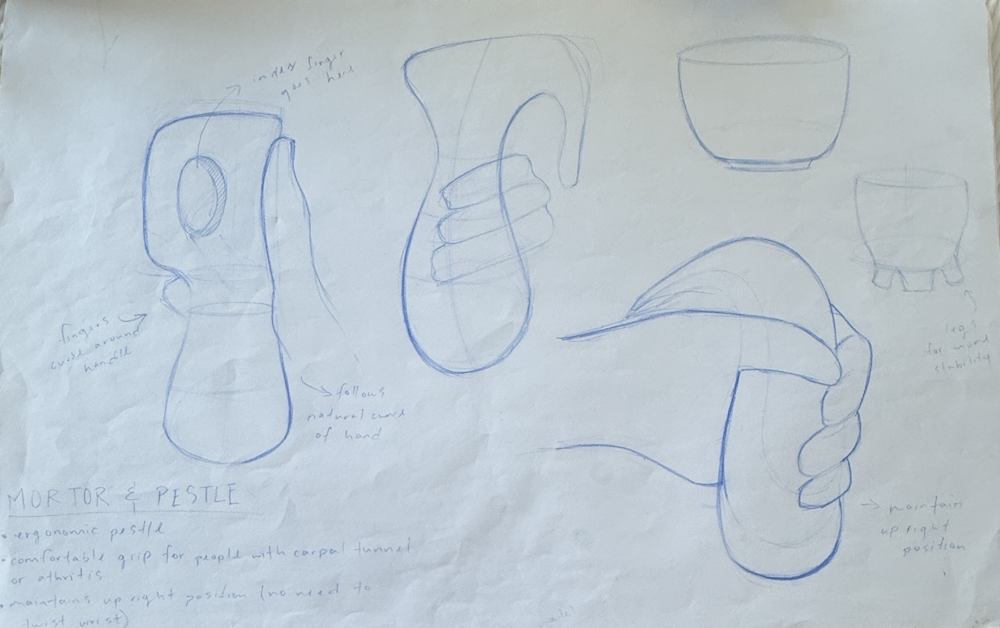 index finger
goes here
fingers
curve around
handle
follows
natural curve
of hand
legs
for more
stability
maintain
up right
position
MORTOR & PESTLE
• ergonomic pestle
• comfortable grip for people with carpal tunnel
or athritis
• maintains up right position (no need to
twist wrist)